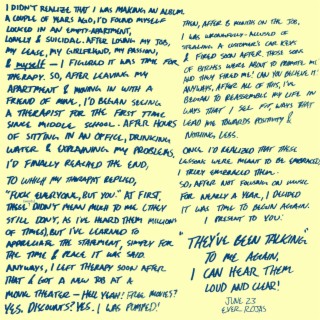 I DIDN'T REALIZE THAT I WAS MAKING AN ALBUM.
A COUPLE OF YEARS AGO, I'D FOUND MYSELF
LOCKED IN AN EMPTY APARTMENT,
LONELY & SUICIDAL. AFTER LOSING MY JOB,
MY LEASE, MY GIRLFRIEND, MY PASSION,
& MYSELF — I FIGURED IT WAS TIME FOR
THERAPY. SO, AFTER LEAVING MY
APARTMENT & MOVING IN WITH A
FRIEND OF MINE, I'D BEGAN SEEING
A THERAPIST FOR THE FIRST TIME
SINCE MIDDLE SCHOOL. AFTER HOURS
OF SITTING IN AN OFFICE, DRINKING
WATER & EXPLAINING MY PROBLEMS,
I'D FINALLY REACHED THE END,
TO WHICH MY THERAPIST REPLIED,
"FUCK EVERYONE, BUT YOU." AT FIRST,
THESE DIDN'T MEAN MUCH TO ME (THEY
STILL DON'T, AS I'VE HEARD THEM MILLIONS
OF TIMES), BUT I'VE LEARNED TO
APPRECIATE THE STATEMENT, SIMPLY FOR
THE TIME & PLACE IT WAS SAID.
ANYWAYS, I LEFT THERAPY SOON AFTER
THAT & GOT A NEW JOB AT A
MOVIE THEATER — HELL YEAH! FREE MOVIES?
YES. DISCOUNTS? YES. I WAS PUMPED!
THEN, AFTER 8 MONTHS ON THE JOB,
I WAS WRONGFULLY ACCUSED OF
STEALING A CUSTOMER'S CAR KEYS
& FIRED SOON AFTER. THOSE SONS
OF BITCHES WERE ABOUT TO PROMOTE ME
AND THEY FIRED ME! CAN YOU BELIEVE IT?
ANYWAYS, AFTER ALL OF THIS, I'VE
BEGUN TO REASSEMBLE MY LIFE IN
WAYS THAT I SEE FIT. WAYS THAT
LEAD ME TOWARDS POSITIVITY &
NOTHING LESS.
ONCE I'D REALIZED THAT THESE
LESSONS WERE MEANT TO BE EMBRACED,
I TRULY EMBRACED THEM.
SO, AFTER NOT FOCUSING ON MUSIC
FOR NEARLY A YEAR, I DECIDED
IT WAS TIME TO BEGIN AGAIN.
I PRESENT TO YOU:
"THEY'VE BEEN TALKING"
TO ME AGAIN,
I CAN HEAR THEM
LOUD AND CLEAR!
JUNE 23
EVER ROJAS